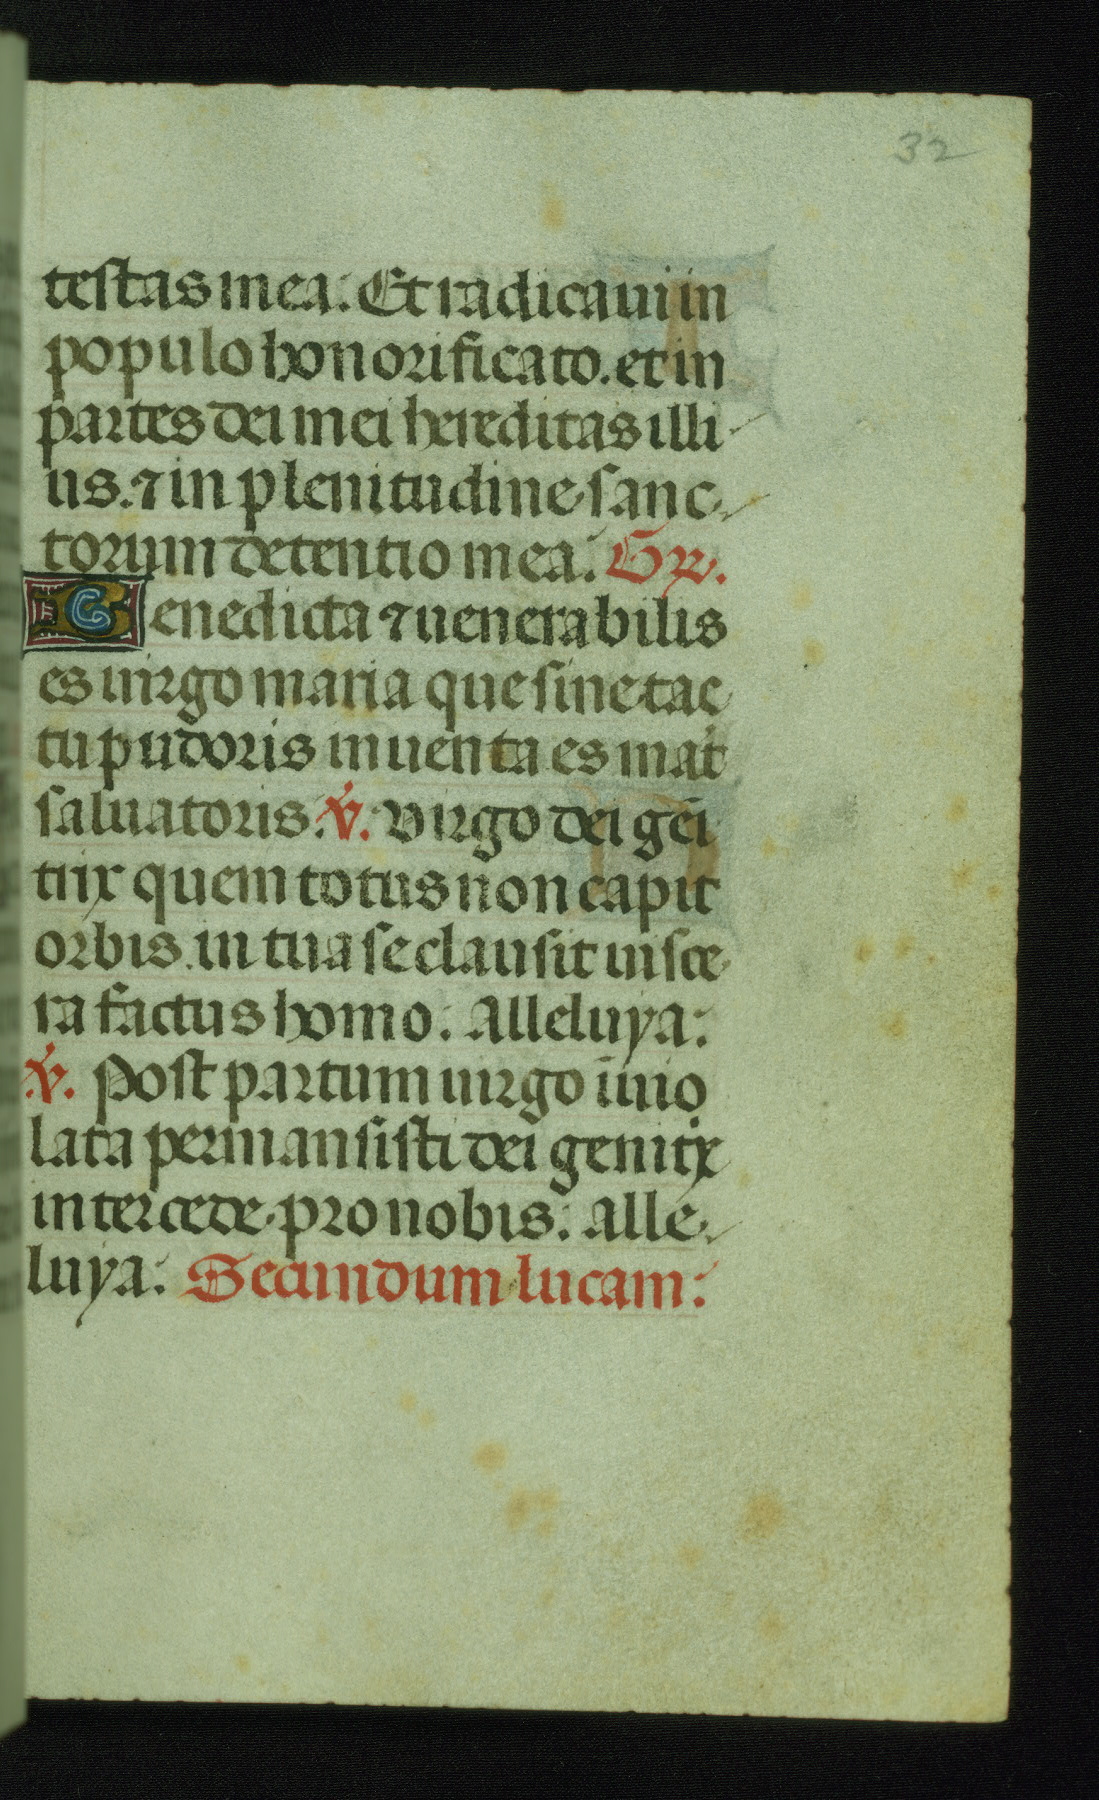 32
testas mea: Et radicaui in
populo honorificato. et in
partes dei mei hereditas illi
us. ⁊ in plenitudine sanc
torum detentio mea: Gr̃.
Benedicta ⁊ uenerabilis
es uirgo maria que sine tac
tu pudoris inuenta es mat̾
saluatoris. ℣. Virgo dei gẽi
trix quem totus non capit
orbis. in tua se clausit uisce
ra factus homo: Alleluya:
℣. Post partum uirgo ĩuio
lata permansisti dei genitͥx
intercede pro nobis: Alle
luya: Secundum lucam: